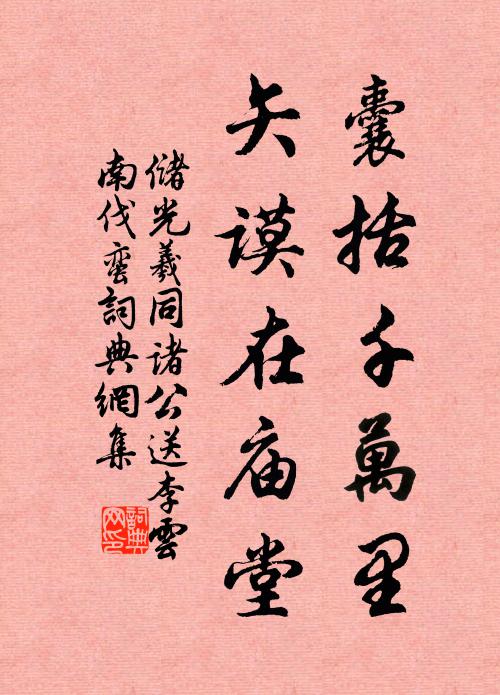 囊括千萬里
矢謨在庙堂
儲光羲同諸公送李雲
南伐蠻詞典網集
詞典
网印